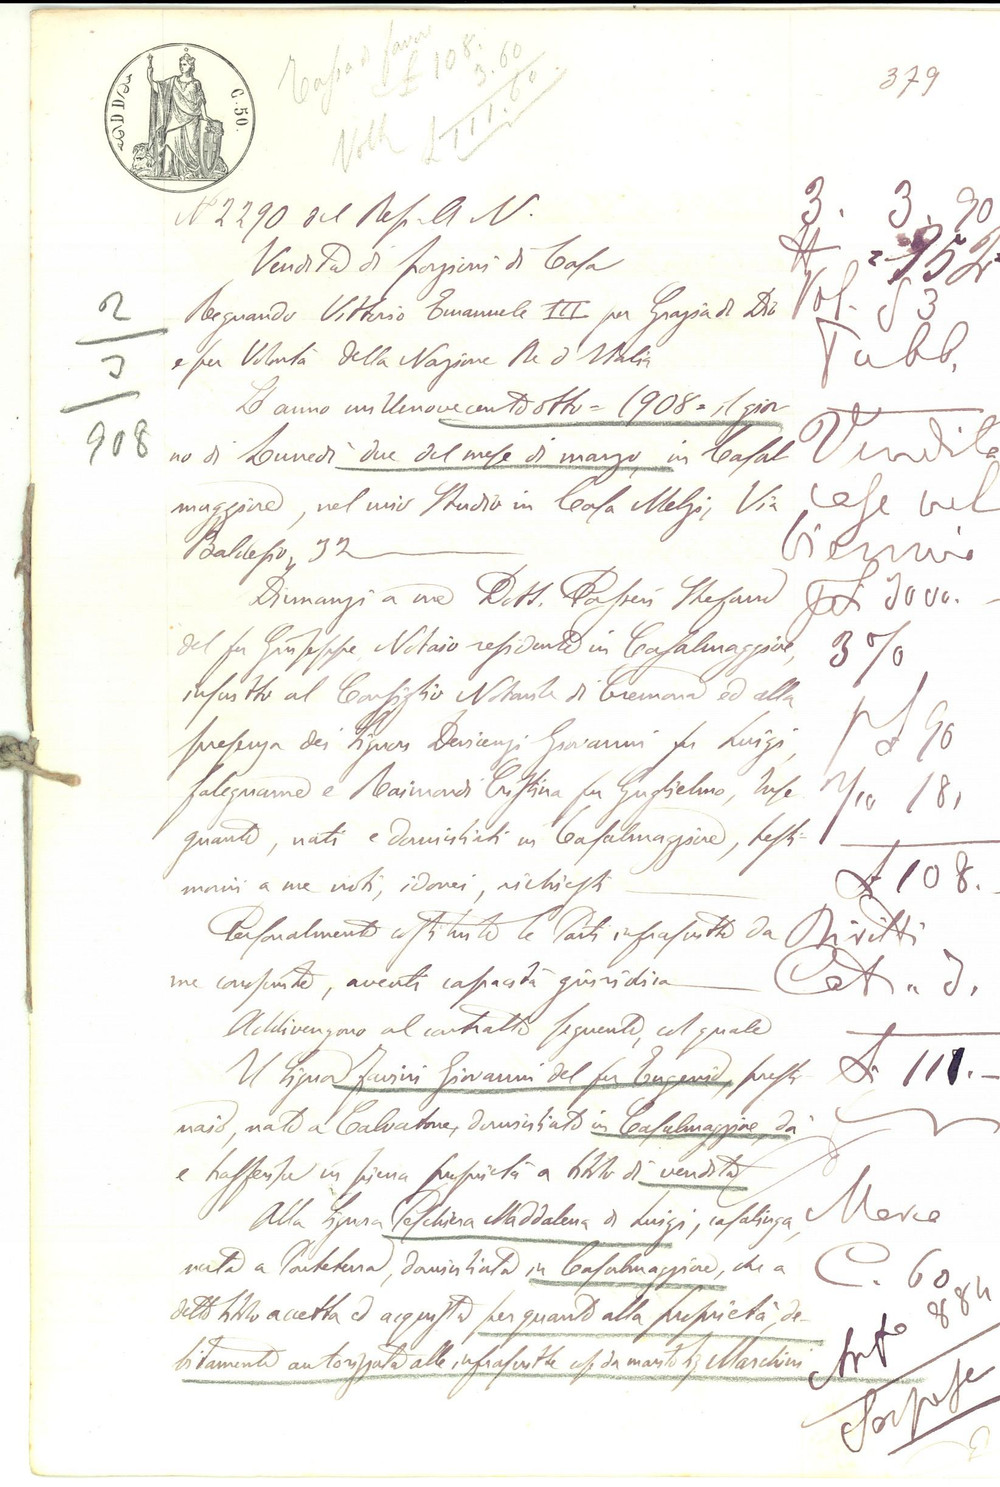 379
Tassa di favore
£ 108.
3.60
Volt £ 111.60
C. 50.
N° 2290 del Rep. N.
Vendita di porzioni di Casa
Regnando Vittorio Emanuele III per Grazia di Dio
e per Volontà della Nazione Re d'Italia
L'anno millenovecentootto = 1908 = il gior
no di Lunedì due del mese di marzo, in Casal
maggiore, nel mio Studio in Casa Melzi, Via
Baldesio, 32
Dinnanzi a me Dott. Stefano
del fu Giuseppe, Notaio residente in Casalmaggiore,
inscritto al Consiglio Notarile di Cremona ed alla
presenza dei Signori Devicenzi Giovanni fu Luigi,
falegname e Raimondi Cristina fu Guglielmo,
nati e domiciliati in Casalmaggiore, testi-
moni a me noti, idonei, richiesti
Personalmente costituite le Parti infrascritte da
me conosciute, aventi capacità giuridica
Addivengono al contratto seguente, col quale
Il Signor Favini Giovanni del fu Eugenio, presti-
naio, nato a Calvatone, domiciliato in Casalmaggiore, dà
e trasferisce in piena proprietà a titolo di vendita
Alla Signora Peschiera Maddalena di Luigi, casalinga,
nata a Ponteterra, domiciliata in Casalmaggiore, che a
detto titolo accetta ed acquista per quanto alla proprietà, de-
bitamente autorizzata alle infrascritte cose da marito Marchini
2
3
908
3. 3. 90
Vol. 83
Pubb.
Vendita
case nel
biennio
p £ 3000.-
3%
p £ 90
2/10 18,
£ 108.-
Diritti
Cat. 3.
£ 111.-
Marca
C. 60
Art° 884